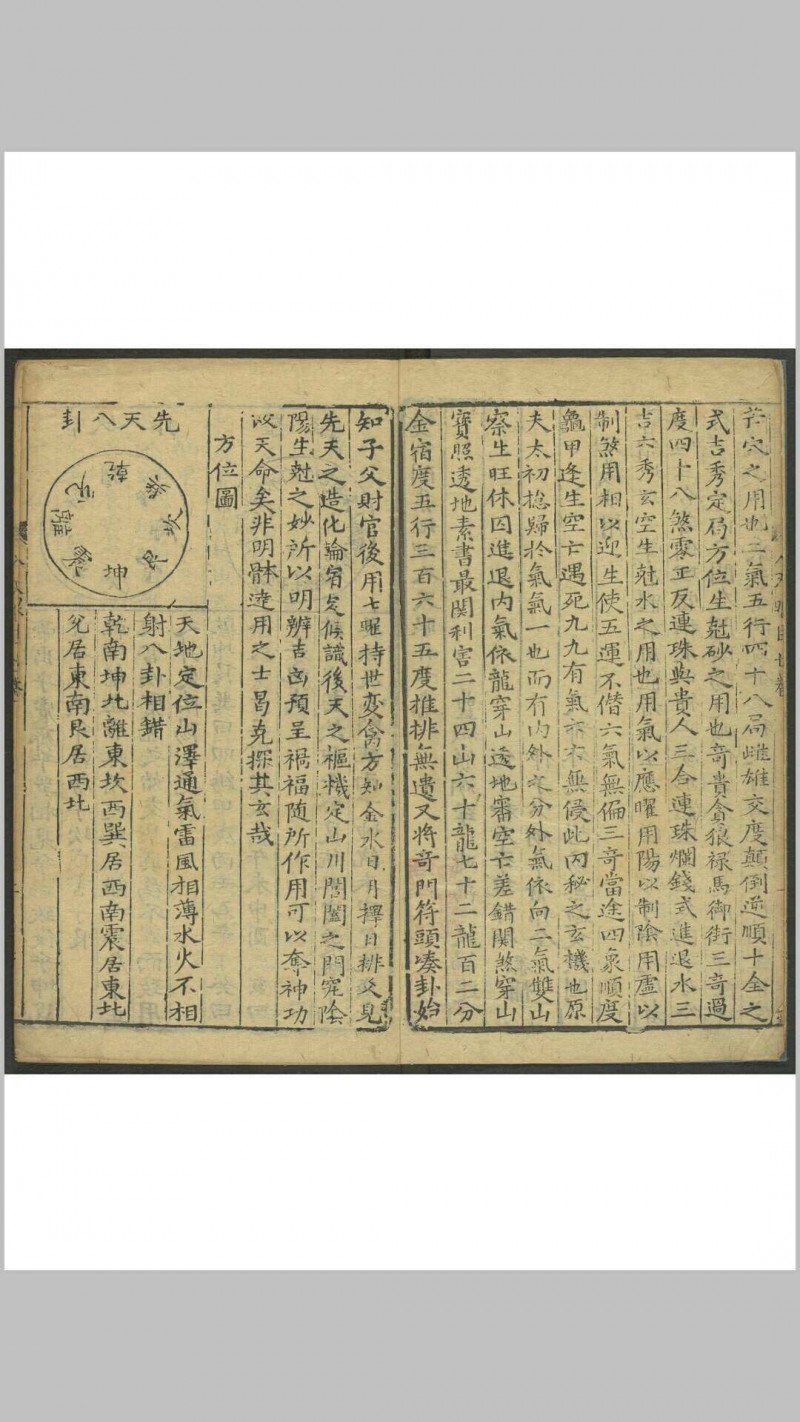 穴之用也二氣五行四十八局雌雄交度顛倒逆順十全之
式吉秀定局方位生尅砂之用也奇貴貪狼禄馬御街三奇過
度四十八煞零正反連珠與貴人三合連珠爛錢式進退水三
吉六秀玄空生尅水之用也用氣以應曜用陽以制陰用虛以
制煞用相以迎生使五運不偺六氣無偏三奇當途四象順度
龜甲逢生空亡遇死九九有氣六六無侵此內秘之玄機也原
夫太初捴歸於氣氣一也而有内外之分外氣依向二氣雙山
察生旺休囚進退内氣依龍穿山透地審空亡差錯関煞穿山
寳照透地素書最関利害二十四山六十龍七十二龍百二分
金宿度五行三百六十五度推排無遺又將奇門符頭凑卦始
知子父財官後用七曜持世变禽方知金水日月擇日排爻見
先天之造化論宿定候識後天之樞機定山川闔闢之門𮎰陰
陽生尅之妙所以明辨吉凶預呈禍福随所作用可以奪神功
以天命矣非明躰達用之士曷克探其玄哉
方位圖
先天八卦
乾
兑
離
坎
坤
天地定位山澤通氣雷風相薄水火不相
射八卦相錯
乾南坤北離東坎西巽居西南震居東北
兑居東南艮居西北